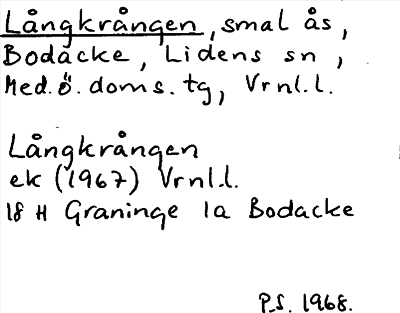 Långkrången, smal ås,
Bodacke, Lidens sn,
Med.ö.doms.tg, Vrnl.l.
Långkrången
ek (1967) Vrnl.l.
18 H Graninge 1a Bodacke
P.S. 1968.